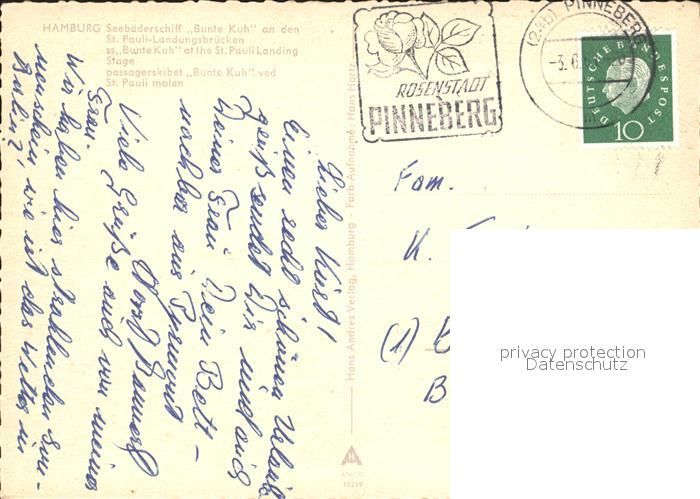 HAMBURG Seebäderschiff „Bunte Kuh" an den
St. Pauli-Landungsbrücken
ss „Bunte Kuh" at the St. Pauli Landing
Stage
passagerskibet „Bunte Kuh" ved
St. Pauli molen
Lieber Kurt!
Einen recht schönen Urlaubs-
gruß sendet Dir und auch
Deiner Frau Dein Bett-
nachbar aus
Horst
Viele Grüße auch von meiner
Frau.
Wir haben hier strahlenden Son-
nenschein, wie ist das Wetter in
Berlin?
Hans Andres Verlag, Hamburg - Farb-Aufnahme: Hans Hart
ANDRES
10259
ROSENSTADT
PINNEBERG
(24b) PINNEBERG
-3.6.
DEUTSCHE BUNDESPOST
10
Fam.
K.
(1) B
B
privacy protection
Datenschutz